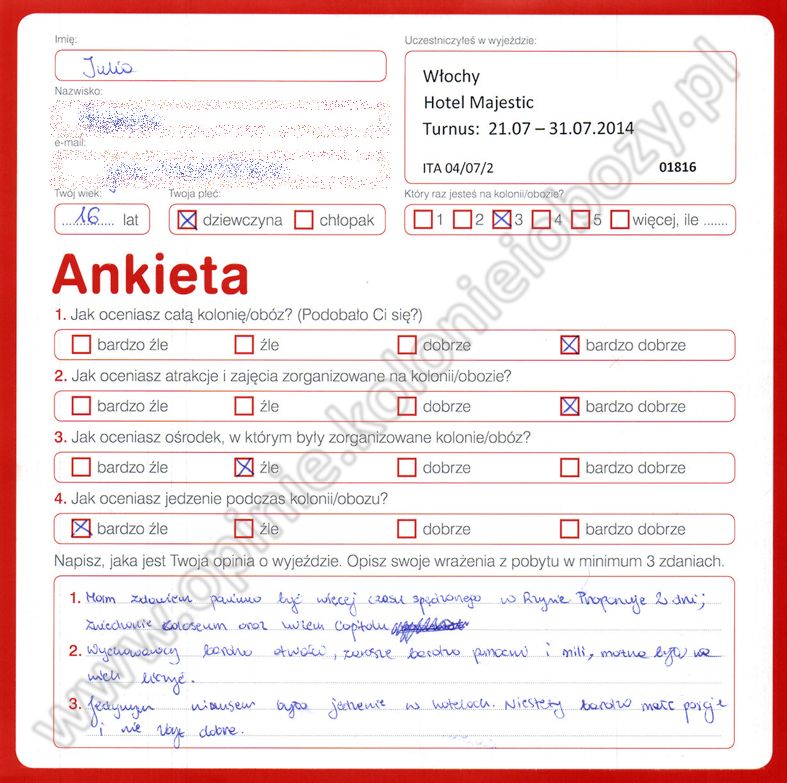 Imię:
Julia
Uczestniczyłeś w wyjeździe:
Włochy
Hotel Majestic
Turnus: 21.07 – 31.07.2014
ITA 04/07/2 01816
Nazwisko:
e-mail:
Twój wiek:
16 lat
Twoja płeć:
dziewczyna chłopak
Który raz jesteś na kolonii/obozie?
1 2 3 4 5 więcej, ile .......
Ankieta
1. Jak oceniasz całą kolonię/obóz? (Podobało Ci się?)
bardzo źle źle dobrze bardzo dobrze
2. Jak oceniasz atrakcje i zajęcia zorganizowane na kolonii/obozie?
bardzo źle źle dobrze bardzo dobrze
3. Jak oceniasz ośrodek, w którym były zorganizowane kolonie/obóz?
bardzo źle źle dobrze bardzo dobrze
4. Jak oceniasz jedzenie podczas kolonii/obozu?
bardzo źle źle dobrze bardzo dobrze
Napisz, jaka jest Twoja opinia o wyjeździe. Opisz swoje wrażenia z pobytu w minimum 3 zdaniach.
1. Moim zdaniem powinno być więcej czasu spędzonego w Rzymie Proponuje 2 dni;
zwiedzanie Koloseum oraz Capitolu
2. Wychowawcy bardzo otwarci, zawsze bardzo pomocni i mili, można było na
nich liczyć.
3. Jedynym minusem było jedzenie w hotelach. Niestety bardzo małe porcje
i nie zbyt dobre.
www.opinie.kolonieiobozy.pl